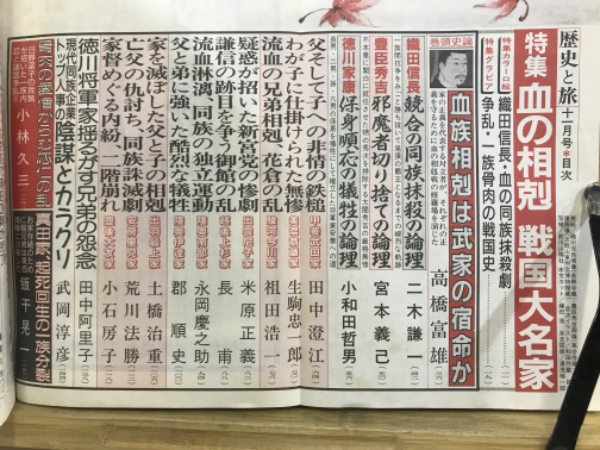 歴史と旅 十一月号*目次
特集 血の相剋 戦国大名家
特集カラー口絵 織田信長・血の同族抹殺劇
特集グラビア 争乱・一族骨肉の戦国史
巻頭史論
血族相剋は武家の宿命か
高橋富雄
織田信長 競合の同族抹殺の論理
二木謙一
豊臣秀吉 邪魔者切り捨ての論理
宮本義己
徳川家康 保身順応の犠牲の論理
小和田哲男
父そして子への非情の鉄槌
甲斐武田家
田中澄江
わが子に仕掛けられた無惨
美濃斎藤家
生駒忠一郎
流血の兄弟相剋、花倉の乱
駿河今川家
祖田浩一
疑惑が招いた新宮党の惨劇
出雲尼子家
米原正義
謙信の跡目を争う御館の乱
越後上杉家
長 甫
流血淋漓、同族の独立運動
陸奥南部家
永岡慶之助
父と弟に強いた酷烈な犠牲
陸奥伊達家
郡 順史
家を滅ぼした父と子の相剋
出羽最上家
土橋治重
亡父の仇討ち、同族誅滅劇
安房里見家
荒川法勝
家督めぐる内紛、二階崩れ
豊後大友家
小石房子
徳川将軍家揺るがす兄弟の怨念
田中阿里子
現代同族企業トップ人事の陰謀とカラクリ
武岡淳彦
骨肉の愛憎からむ応仁の乱
小林久三
真田家、起死回生の一族分裂
飯干晃一